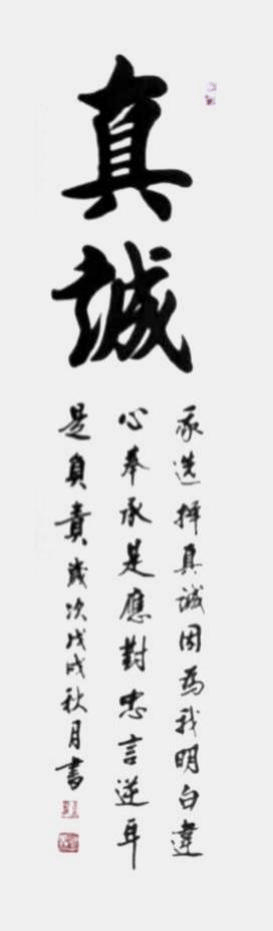 真誠
我選擇真誠因為我明白違
心奉承是應對忠言逆耳
是負責歲次戊戌秋月書